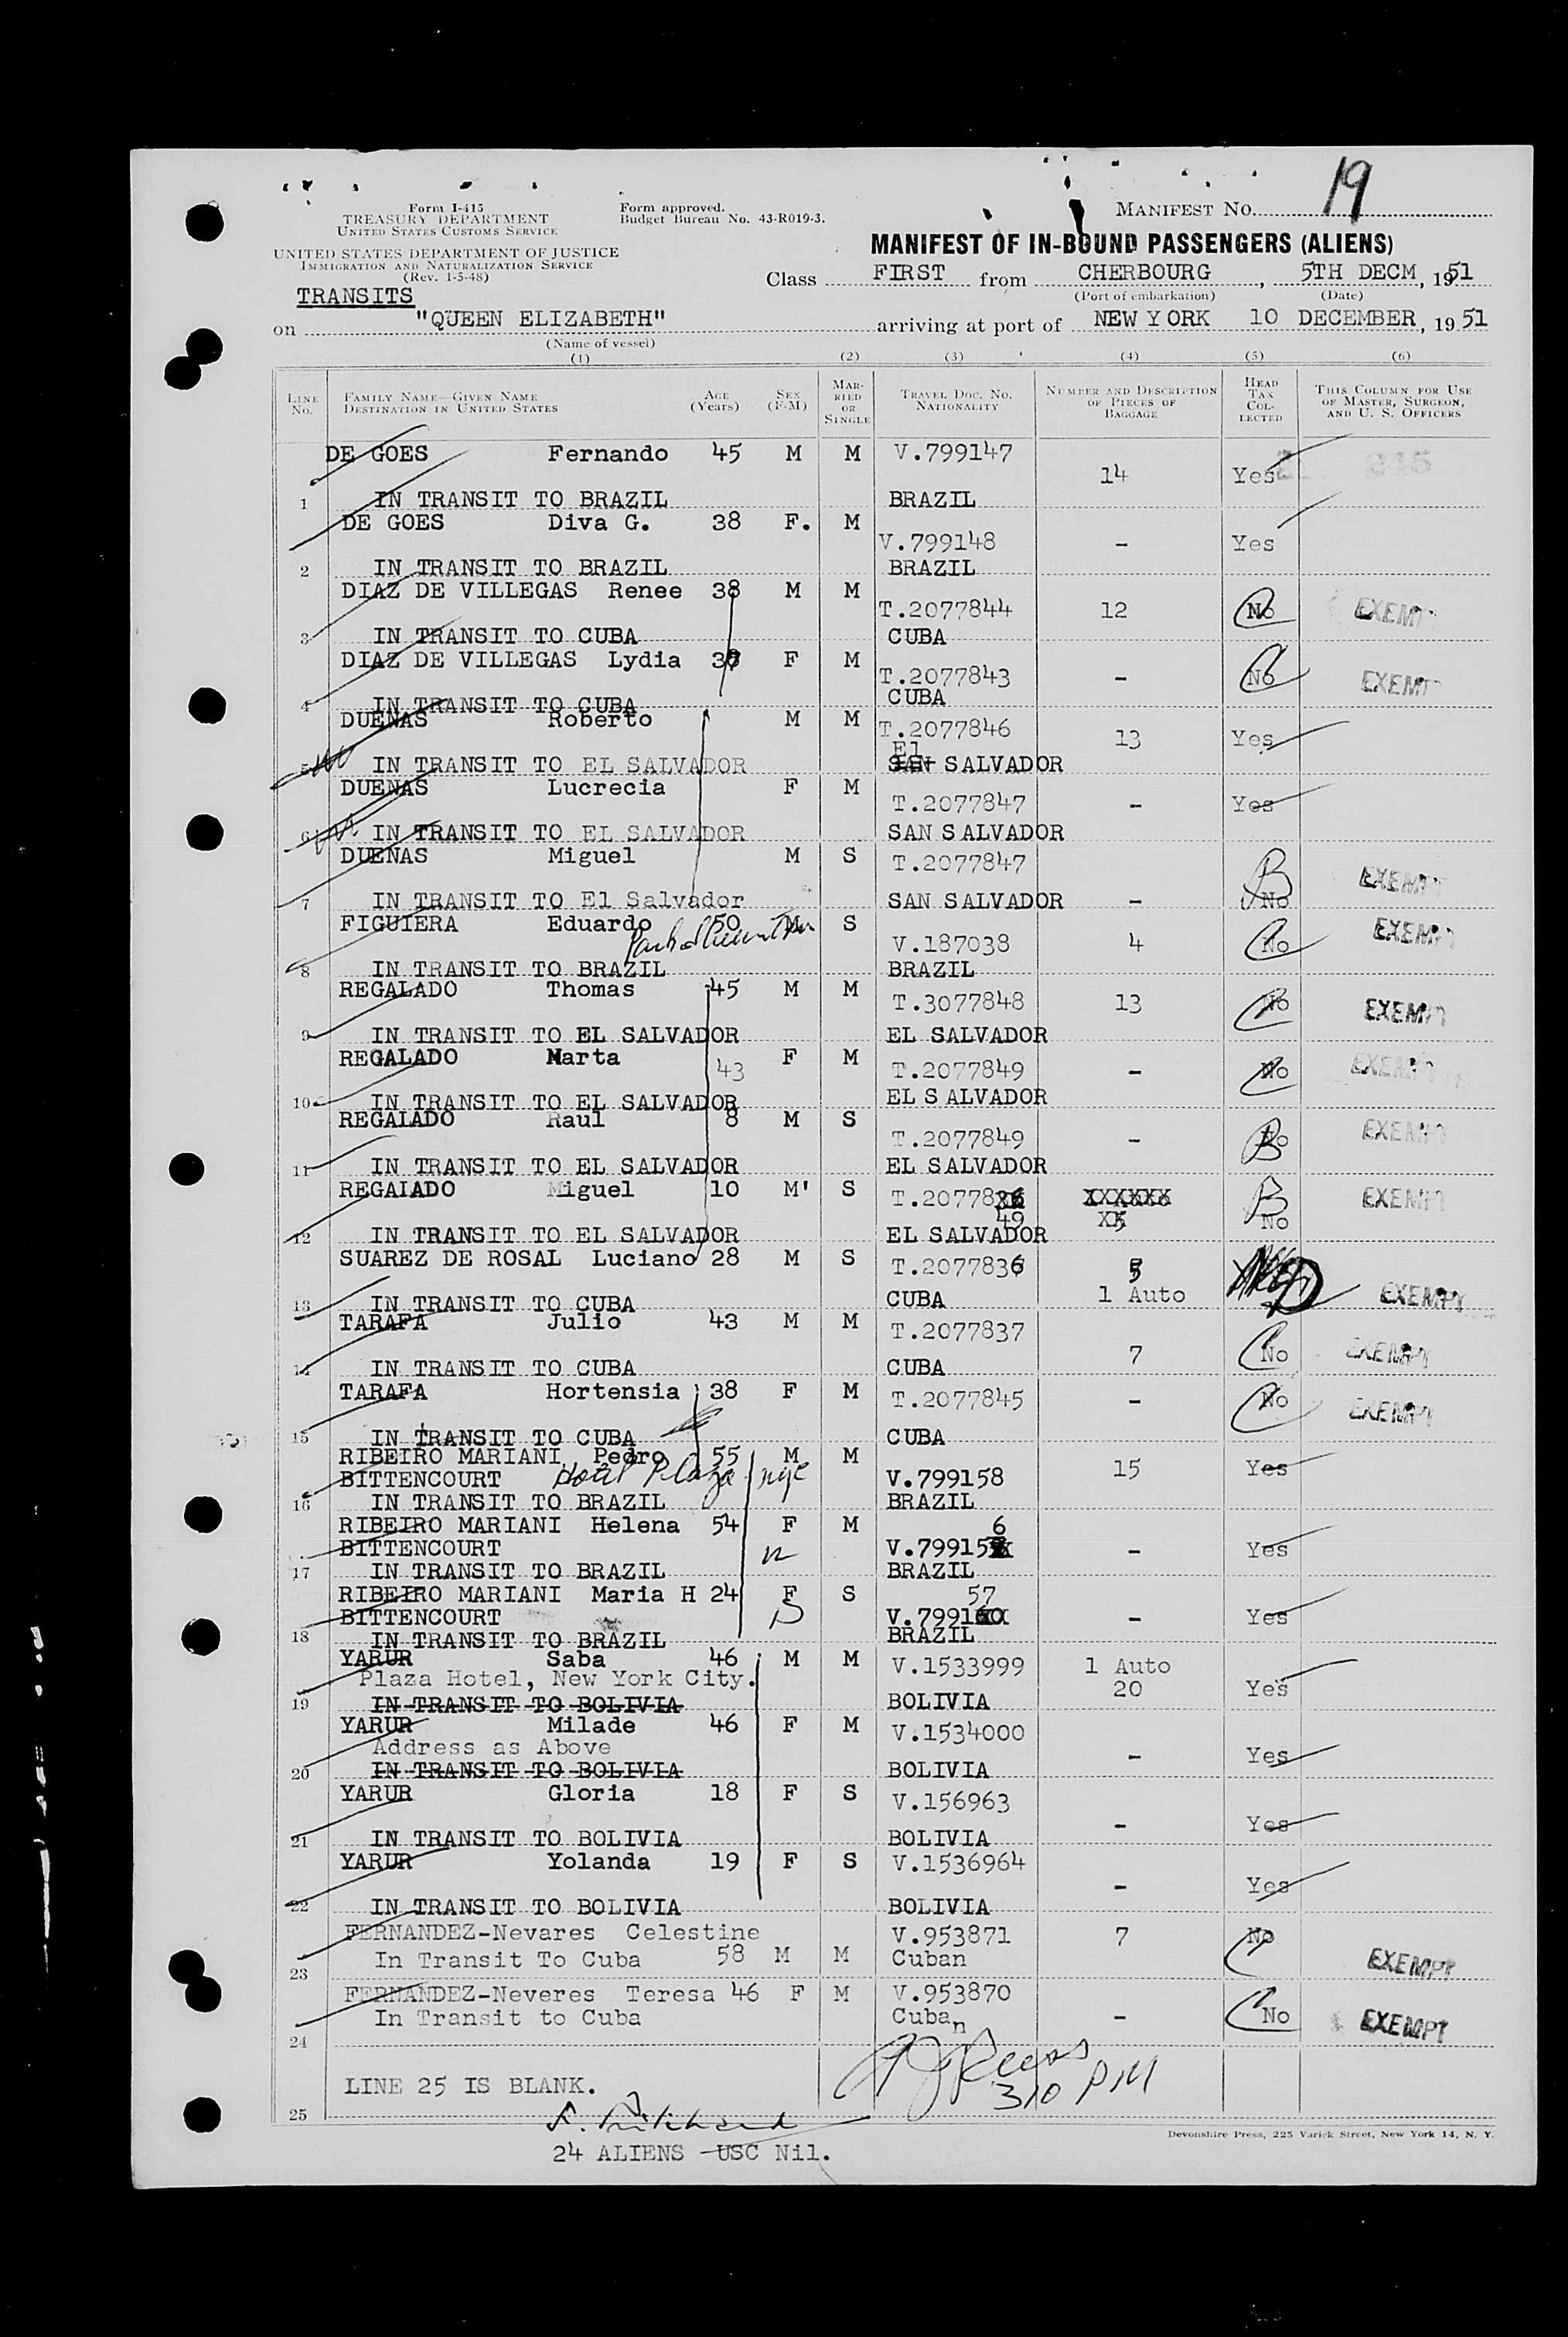 19
Form I-415
TREASURY DEPARTMENT
UNITED STATES CUSTOMS SERVICE
Form approved.
Budget Bureau No. 43-R019-3.
MANIFEST NO.
UNITED STATES DEPARTMENT OF JUSTICE
IMMIGRATION AND NATURALIZATION SERVICE
(Rev. 1-5-48)
MANIFEST OF IN-BOUND PASSENGERS (ALIENS)
TRANSITS
Class FIRST from CHERBOURG, 5TH DECM, 1951
(Port of embarkation) (Date)
on "QUEEN ELIZABETH" arriving at port of NEW YORK 10 DECEMBER, 1951
(Name of vessel)
(1) (2) (3) (4) (5) (6)
LINE NO. FAMILY NAME—GIVEN NAME DESTINATION IN UNITED STATES AGE (Years) SEX (F-M) MARRIED OR SINGLE TRAVEL DOC. NO. NATIONALITY NUMBER AND DESCRIPTION OF PIECES OF BAGGAGE HEAD TAX COLLECTED THIS COLUMN FOR USE OF MASTER, SURGEON, AND U. S. OFFICERS
DE GOES Fernando 45 M M V.799147 14 Yes
1 IN TRANSIT TO BRAZIL BRAZIL
DE GOES Diva G. 38 F. M V.799148 - Yes
2 IN TRANSIT TO BRAZIL BRAZIL
DIAZ DE VILLEGAS Renee 38 M M T.2077844 12 No EXEMPT
3 IN TRANSIT TO CUBA CUBA
DIAZ DE VILLEGAS Lydia F M T.2077843 - No EXEMPT
4 IN TRANSIT TO CUBA CUBA
DUENAS Roberto M M T.2077846 13 Yes
El
5 IN TRANSIT TO EL SALVADOR SAN SALVADOR
DUENAS Lucrecia F M T.2077847 - Yes
6 IN TRANSIT TO EL SALVADOR SAN SALVADOR
DUENAS Miguel M S T.2077847 B EXEMPT
7 IN TRANSIT TO El Salvador SAN SALVADOR - No
FIGUIERA Eduardo 50 M S V.187038 4 No EXEMPT
8 IN TRANSIT TO BRAZIL BRAZIL
REGALADO Thomas 45 M M T.3077848 13 No EXEMPT
9 IN TRANSIT TO EL SALVADOR EL SALVADOR
REGALADO Marta 43 F M T.2077849 - No EXEMPT
10 IN TRANSIT TO EL SALVADOR EL SALVADOR
REGALADO Raul 8 M S T.2077849 - No EXEMPT
11 IN TRANSIT TO EL SALVADOR EL SALVADOR
REGALADO Miguel 10 M' S T.2077836 XXXXXX B EXEMPT
49 No
12 IN TRANSIT TO EL SALVADOR EL SALVADOR
SUAREZ DE ROSAL Luciano 28 M S T.2077836 5
1 Auto EXEMPT
13 IN TRANSIT TO CUBA CUBA
TARAFA Julio 43 M M T.2077837 7 No EXEMPT
14 IN TRANSIT TO CUBA CUBA
TARAFA Hortensia 38 F M T.2077845 - No EXEMPT
15 IN TRANSIT TO CUBA CUBA
RIBEIRO MARIANI Pedro 55 M M
BITTENCOURT Hotel Plaza nyc V.799158 15 Yes
16 IN TRANSIT TO BRAZIL BRAZIL
RIBEIRO MARIANI Helena 54 F M 6
BITTENCOURT V.79915 - Yes
17 IN TRANSIT TO BRAZIL BRAZIL
RIBEIRO MARIANI Maria H 24 F S 57
BITTENCOURT V.799160 - Yes
18 IN TRANSIT TO BRAZIL BRAZIL
YARUR Saba 46 M M V.1533999 1 Auto
Plaza Hotel, New York City. 20 Yes
19 IN TRANSIT TO BOLIVIA BOLIVIA
YARUR Milade 46 F M V.1534000
Address as Above - Yes
20 IN TRANSIT TO BOLIVIA BOLIVIA
YARUR Gloria 18 F S V.156963 - Yes
21 IN TRANSIT TO BOLIVIA BOLIVIA
YARUR Yolanda 19 F S V.1536964 - Yes
22 IN TRANSIT TO BOLIVIA BOLIVIA
FERNANDEZ-Nevares Celestine V.953871 7 No
23 In Transit To Cuba 58 M M Cuban EXEMPT
FERNANDEZ-Neveres Teresa 46 F M V.953870
In Transit to Cuba Cuban - No EXEMPT
24
310 PM
LINE 25 IS BLANK.
25
Devonshire Press, 225 Varick Street, New York 14, N. Y.
24 ALIENS USC Nil.